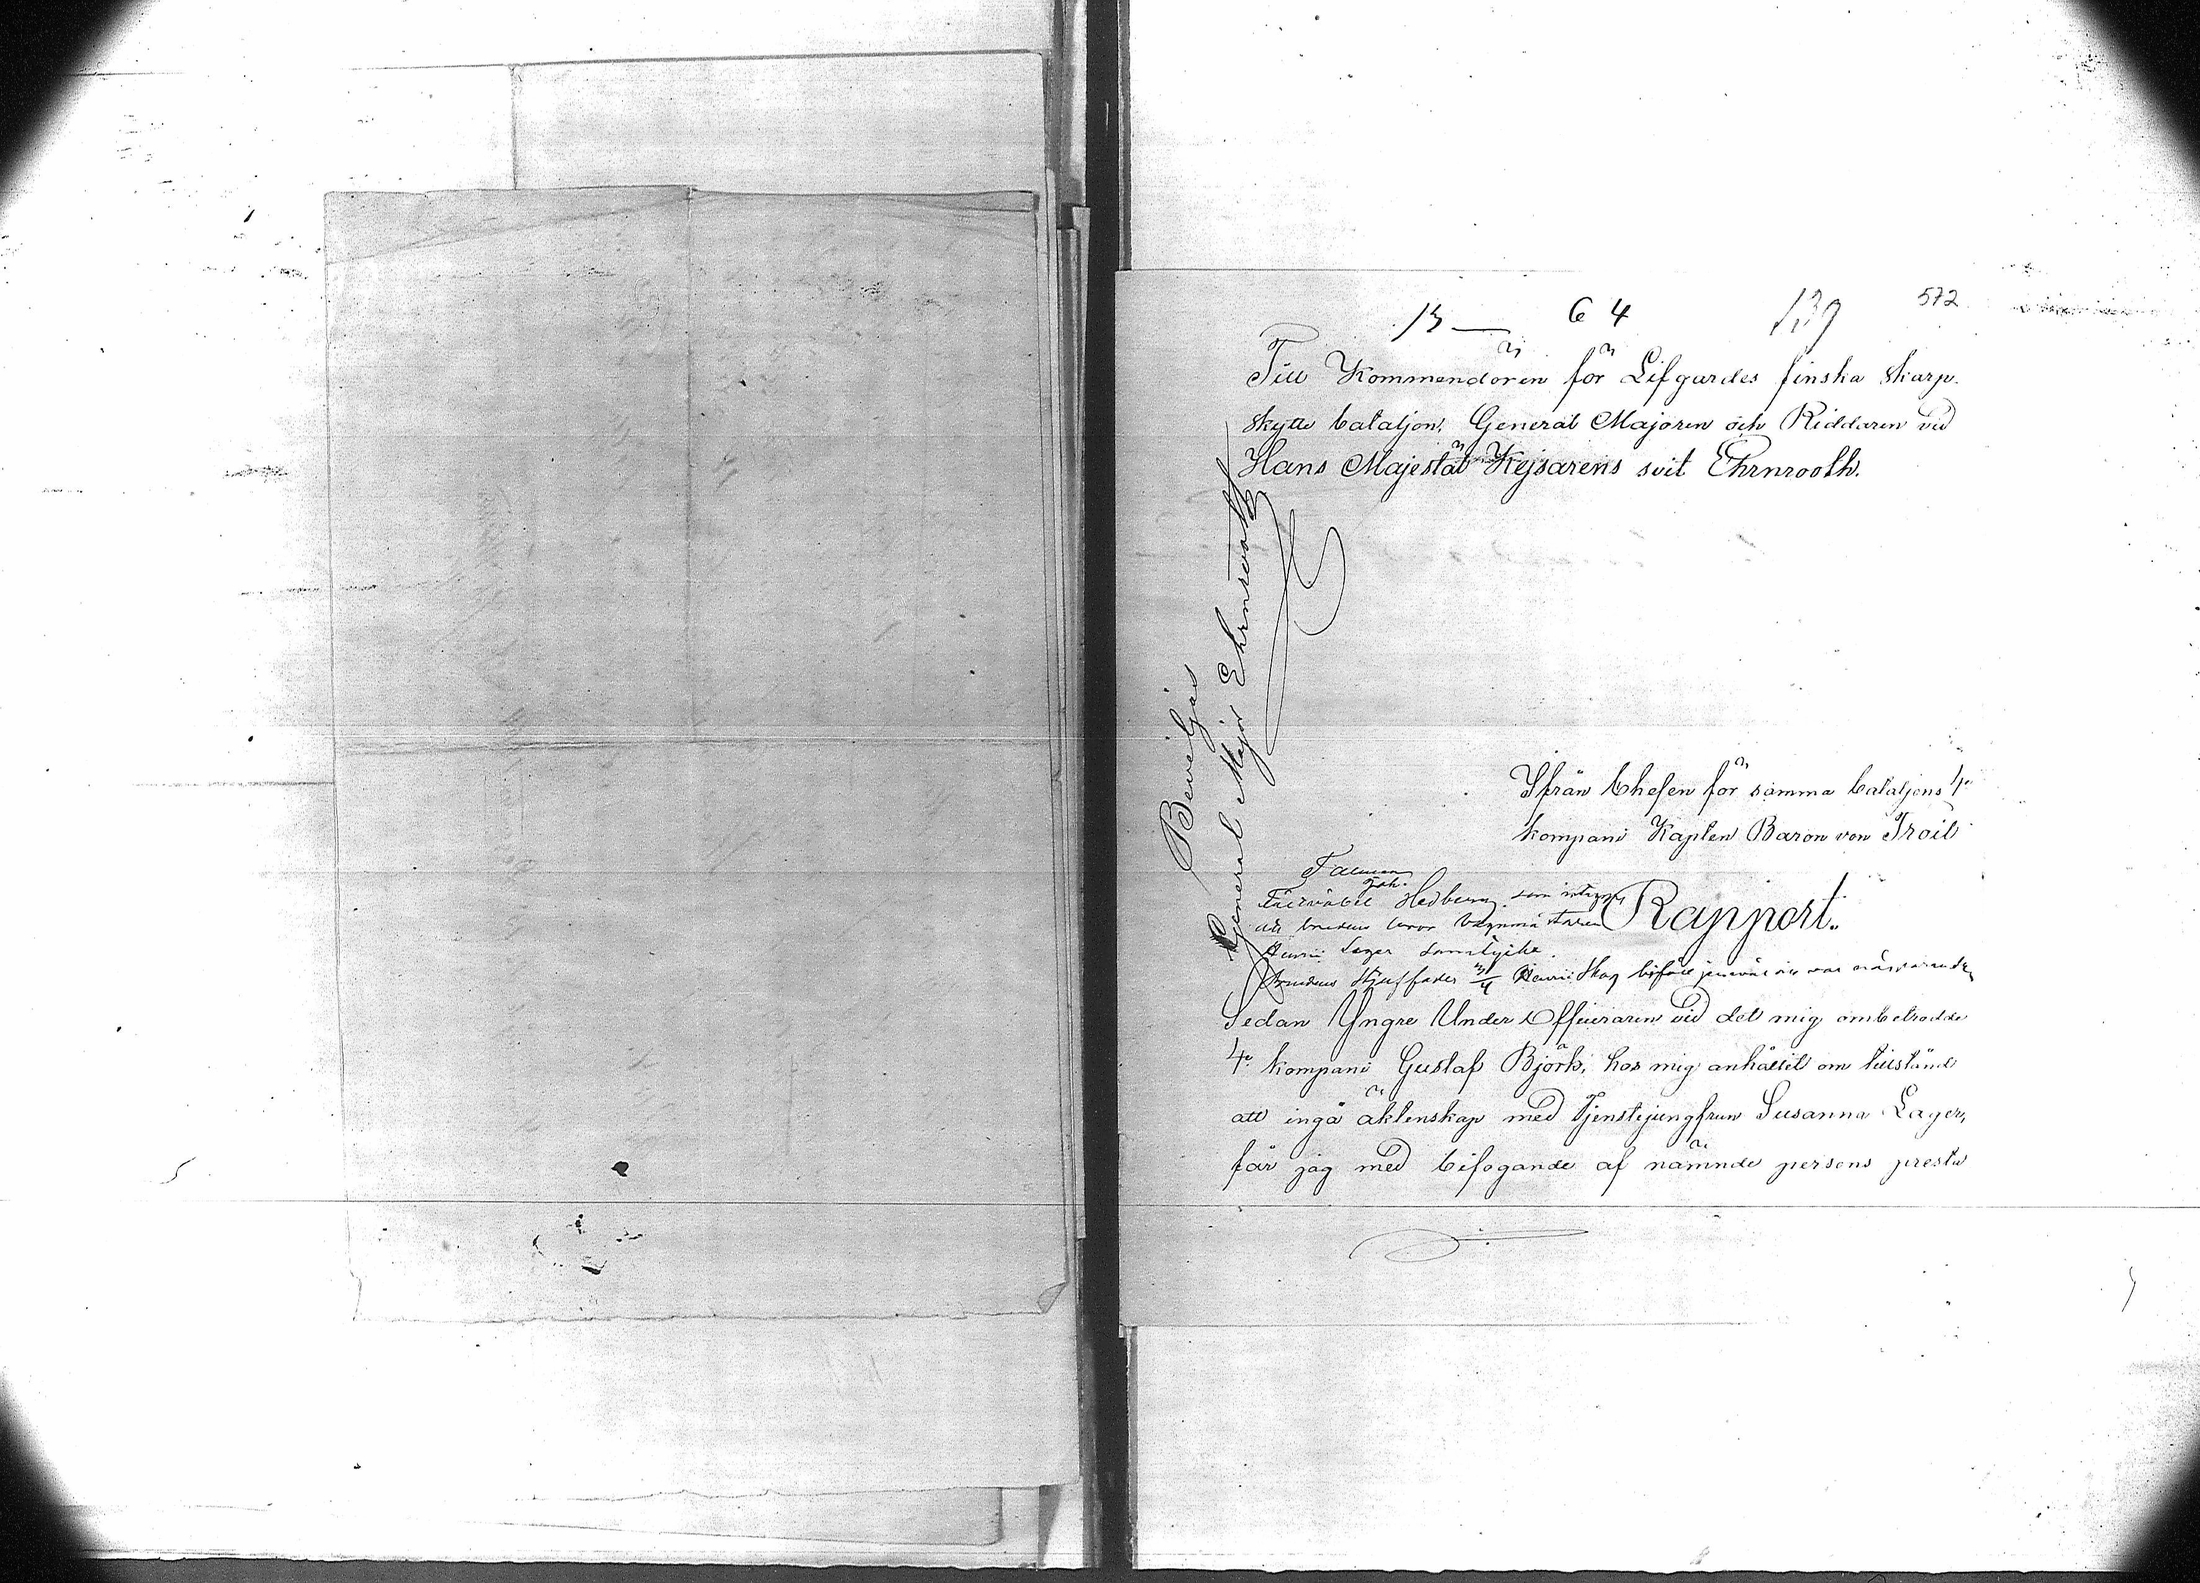 13 — 64 139 572
Till Kommendören för Lifgardes finska skarp-
skytte bataljon, General Majoren och Riddaren vid
Hans Majestät Kejsarens svit Ehrnrooth.
Beviljas
General Major Ehrnrooth
Ifrån Chefen för samma bataljons 4e
kompani Kapten Baron von Troil
Rapport.
Joh.
Hedberg som intygar
att brudens
Henric Lager samtycke.
Brudens Styffader 3/4 Henric Skog
Sedan Yngre Under Officeraren vid det mig ombetrodda
4e kompani Gustaf Björk, hos mig anhållit om tillstånd
att ingå äktenskap med Tjenstejungfrun Susanna Lager,
får jag med bifogande af nämnde persons preste